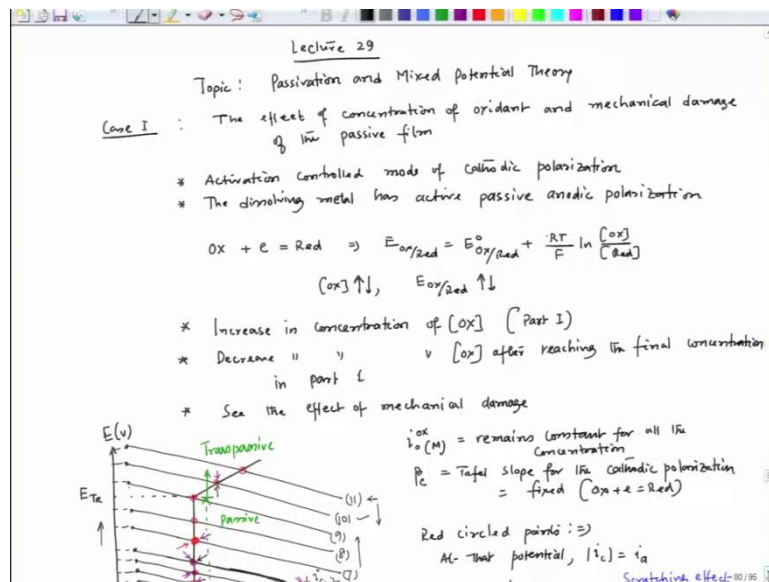 Lecture 29
Topic: Passivation and Mixed Potential Theory
Case I : The effect of concentration of oxidant and mechanical damage
of the passive film
* Activation controlled mode of cathodic polarization
* The dissolving metal has active passive anodic polarization
Ox + e = Red ⇒ E_Ox/Red = E°_Ox/Red + RT/F ln [Ox]/[Red]
[Ox] ↑↓, E_Ox/Red ↑↓
* Increase in concentration of [Ox] (Part I)
* Decrease " " " [Ox] after reaching the final concentration
in part 1
* See the effect of mechanical damage
E(V)
Transpassive
E_TR
Passive
(11)
(10)
(9)
(8)
(7)
i_o(M)^ox = remains constant for all the
concentration
β_c = Tafel slope for the cathodic polarization
= fixed (Ox + e = Red)
Red circled points :⇒
At that potential, |i_c| = i_a
Scratching effect- 80/95